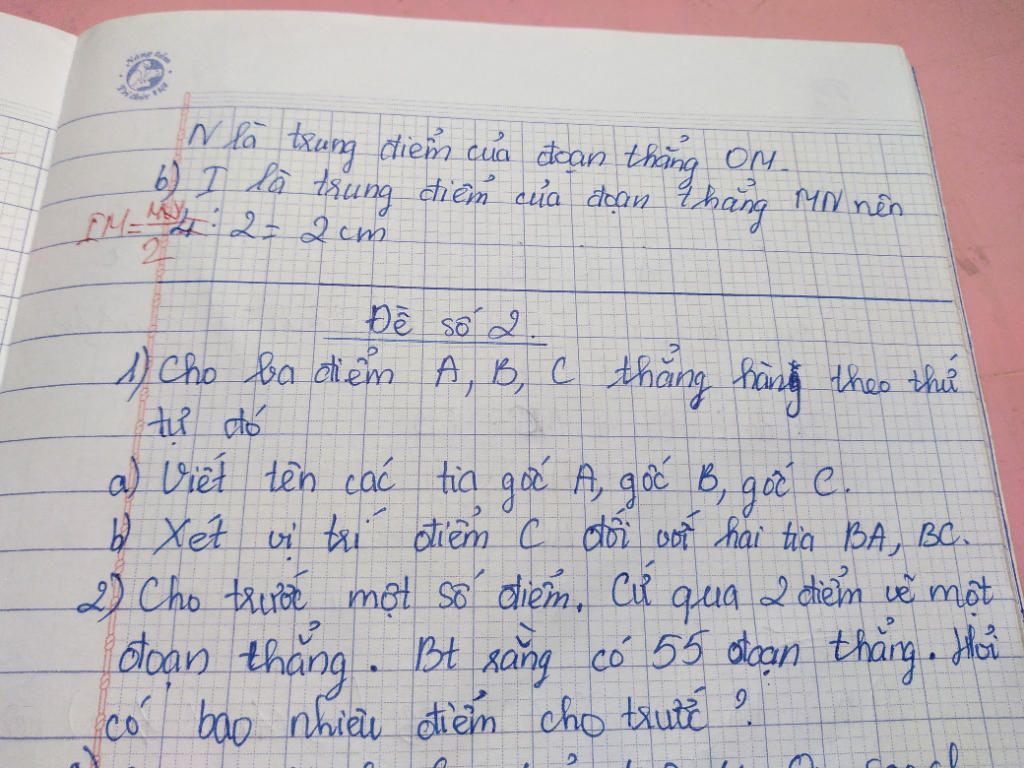 Nâng tầm
Tri thức Việt
N là trung điểm của đoạn thẳng OM.
b) I là trung điểm của đoạn thẳng MN nên
IM = MN/2 4 : 2 = 2 cm
Đề số 2.
1) Cho ba điểm A, B, C thẳng hàng theo thứ
tự đó
a) Viết tên các tia gốc A, gốc B, gốc C.
b) Xét vị trí điểm C đối với hai tia BA, BC.
2) Cho trước một số điểm. Cứ qua 2 điểm vẽ một
đoạn thẳng. Bt rằng có 55 đoạn thẳng. Hỏi
có bao nhiêu điểm cho trước ?